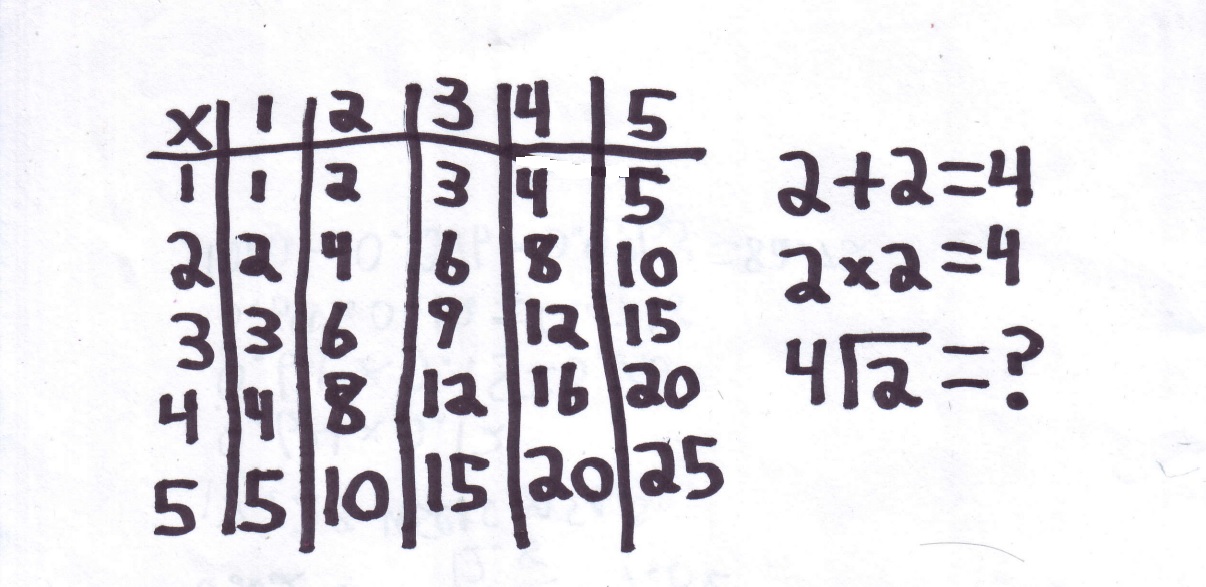 x 1 2 3 4 5
1 1 2 3 4 5
2 2 4 6 8 10
3 3 6 9 12 15
4 4 8 12 16 20
5 5 10 15 20 25
2+2=4
2x2=4
4√2=?